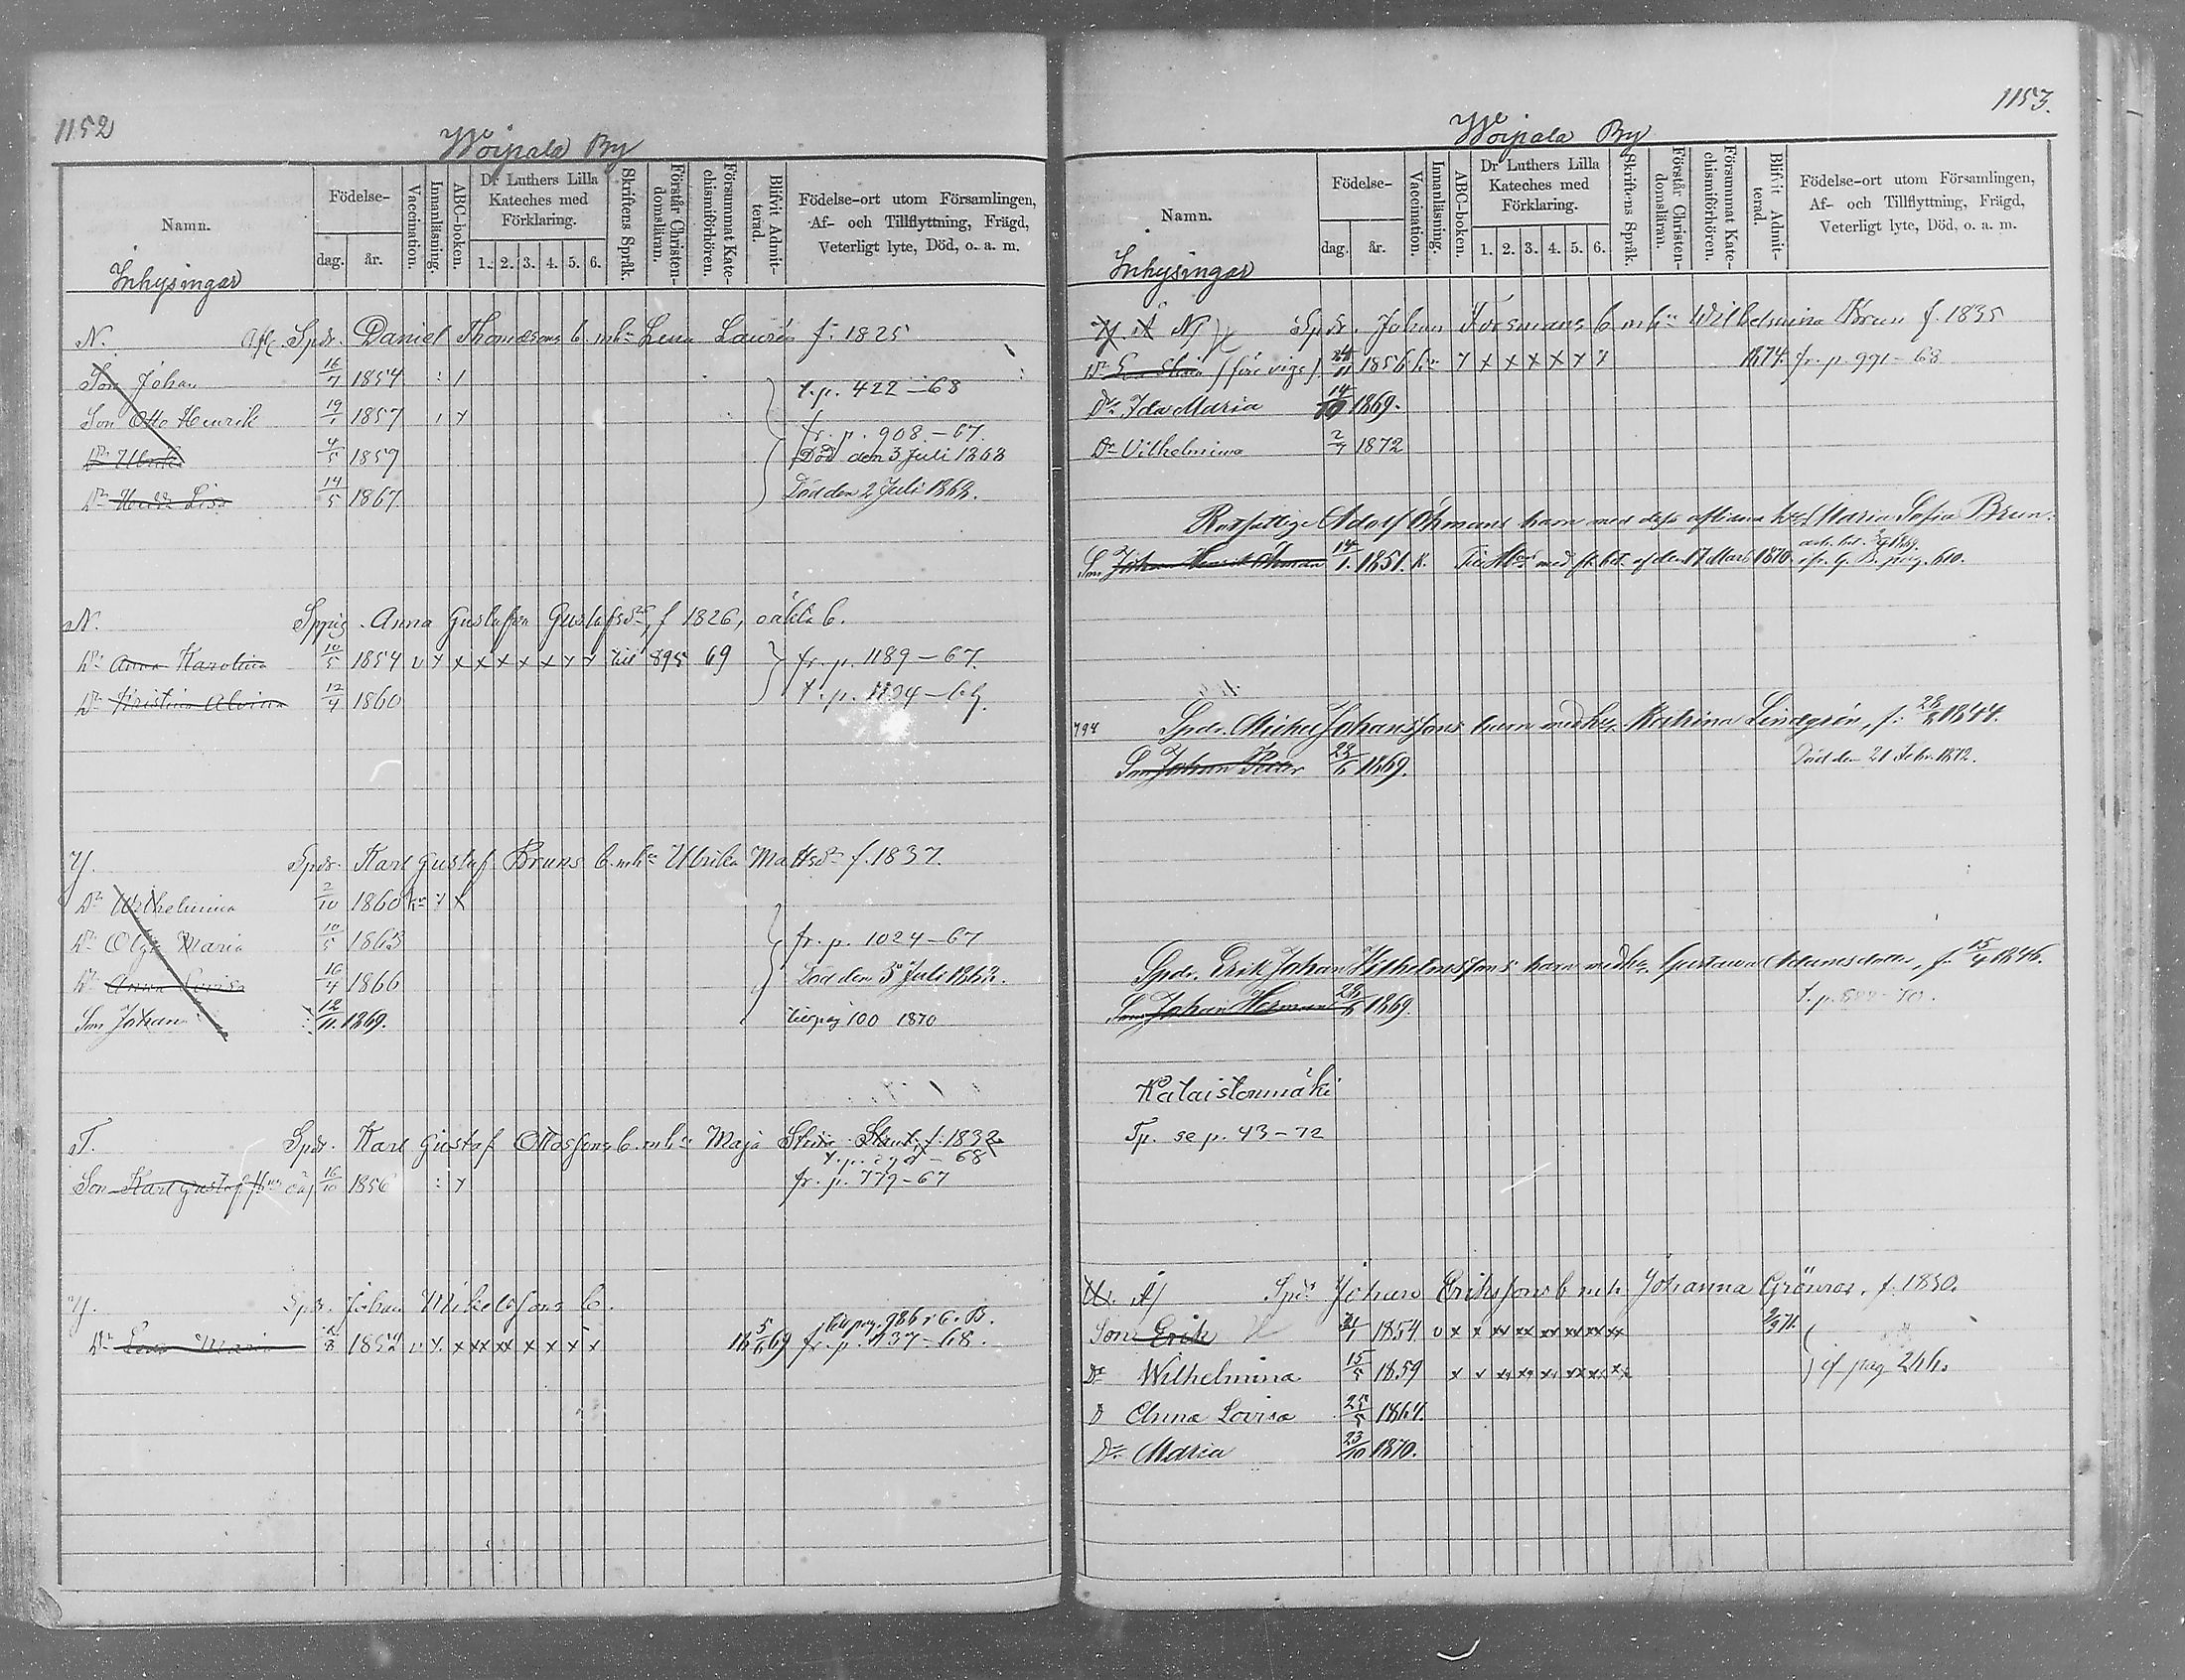 1152
Woipala By
Namn.
Födelse-
dag.
år.
Vaccination.
Innanläsning.
ABC-boken.
Dr Luthers Lilla Kateches med Förklaring.
1. 2. 3. 4. 5. 6.
Skriftens Språk.
Förstår Christendomsläran.
Försummat Katechismiförhören.
Blifvit Admitterad.
Födelse-ort utom Församlingen,
Af- och Tillflyttning, Frägd,
Veterligt lyte, Död, o. a. m.
Inhysingar
N. Afl. Spdr. Daniel Thomassons b. mhu Lena Laurén f. 1825
Son Johan 16/7 1854 t. p. 422-68
Son Otto Henrik 19/1 1857 fr. p. 908.-67.
Dr Ulrika 4/5 1859 Död den 3 Juli 1868
Dr Hedda Lisa 14/5 1867. Död den 2 Juli 1868.
N. Sppig. Anna Gustafva Gustafsdr, f 1826, oäkta b.
Dr Anna Karolina 10/5 1854 v x x x x x x x x till 895 69 fr. p. 1189-67.
Dr Kristina Alvina 12/4 1860 t. p. 1194-69.
Y. Spdr. Karl Gustaf Bruns b. mhu Ulrika Mattsdr f. 1837.
Dr Wilhelmina 2/10 1860
Dr Olga Maria 10/5 1863 fr. p. 1024-67
Dr Anna Lovisa 16/4 1866 Död den 3 Juli 1868.
Son Johan 12/11. 1869. till pag 100 1870
T. Spdr. Karl Gustaf Ottossons b. mhu Maja Stina f. 1832
68
Son Karl Gustaf 16/10 1856 fr. p. 779-67
Y. Spdr. Johan Mikelssons b.
till pag. 986 i C. B.
Dr Eva Maria 1852 fr. p. 1137-68.
1153.
Woipala By
Namn.
Födelse-
dag.
år.
Vaccination.
Innanläsning.
ABC-boken.
Dr Luthers Lilla Kateches med Förklaring.
1. 2. 3. 4. 5. 6.
Skriftens Språk.
Förstår Christendomsläran.
Försummat Katechismiförhören.
Blifvit Admitterad.
Födelse-ort utom Församlingen,
Af- och Tillflyttning, Frägd,
Veterligt lyte, Död, o. a. m.
Inhysingar
Spdr. Johan Forsmans b mhu Wilhelmina Brun f. 1835
Dr Eva Stina (före vigs.) 1856 1874. fr. p. 971-68
Dr Ida Maria 14/10 1869.
Dr Vilhelmina 2/7 1872
Rotfattige Adolf Öhmans barn med dess aflidna h. Maria Sofia Brun.
Son Johan Henrik Öhman 14/1. 1851. med fl. bet. af den 17 Mars 1870. G. B. pag. 610.
794 Spdr. Mickel Johanssons barn med h. Katrina Lindgrén, f. 28/8 1844.
Son Johan Peter 22/6 1869. Död den 21 Febr. 1872.
Spdr. Erik Johan Vilhelmssons barn med h. Gustava Adamsdotter, f. 15/4 1846.
Son Johan Herman 28/6 1869.
Kataistonmäki
Tp. se p. 43-72
Spdr Johan Erikssons b mh Johanna Grönros, f. 1830.
Son Erik 1854
Dr Wilhelmina 15/5 1859 cf pag 266.
D Anna Lovisa 25/5 1864.
Dr Maria 23/10 1870.